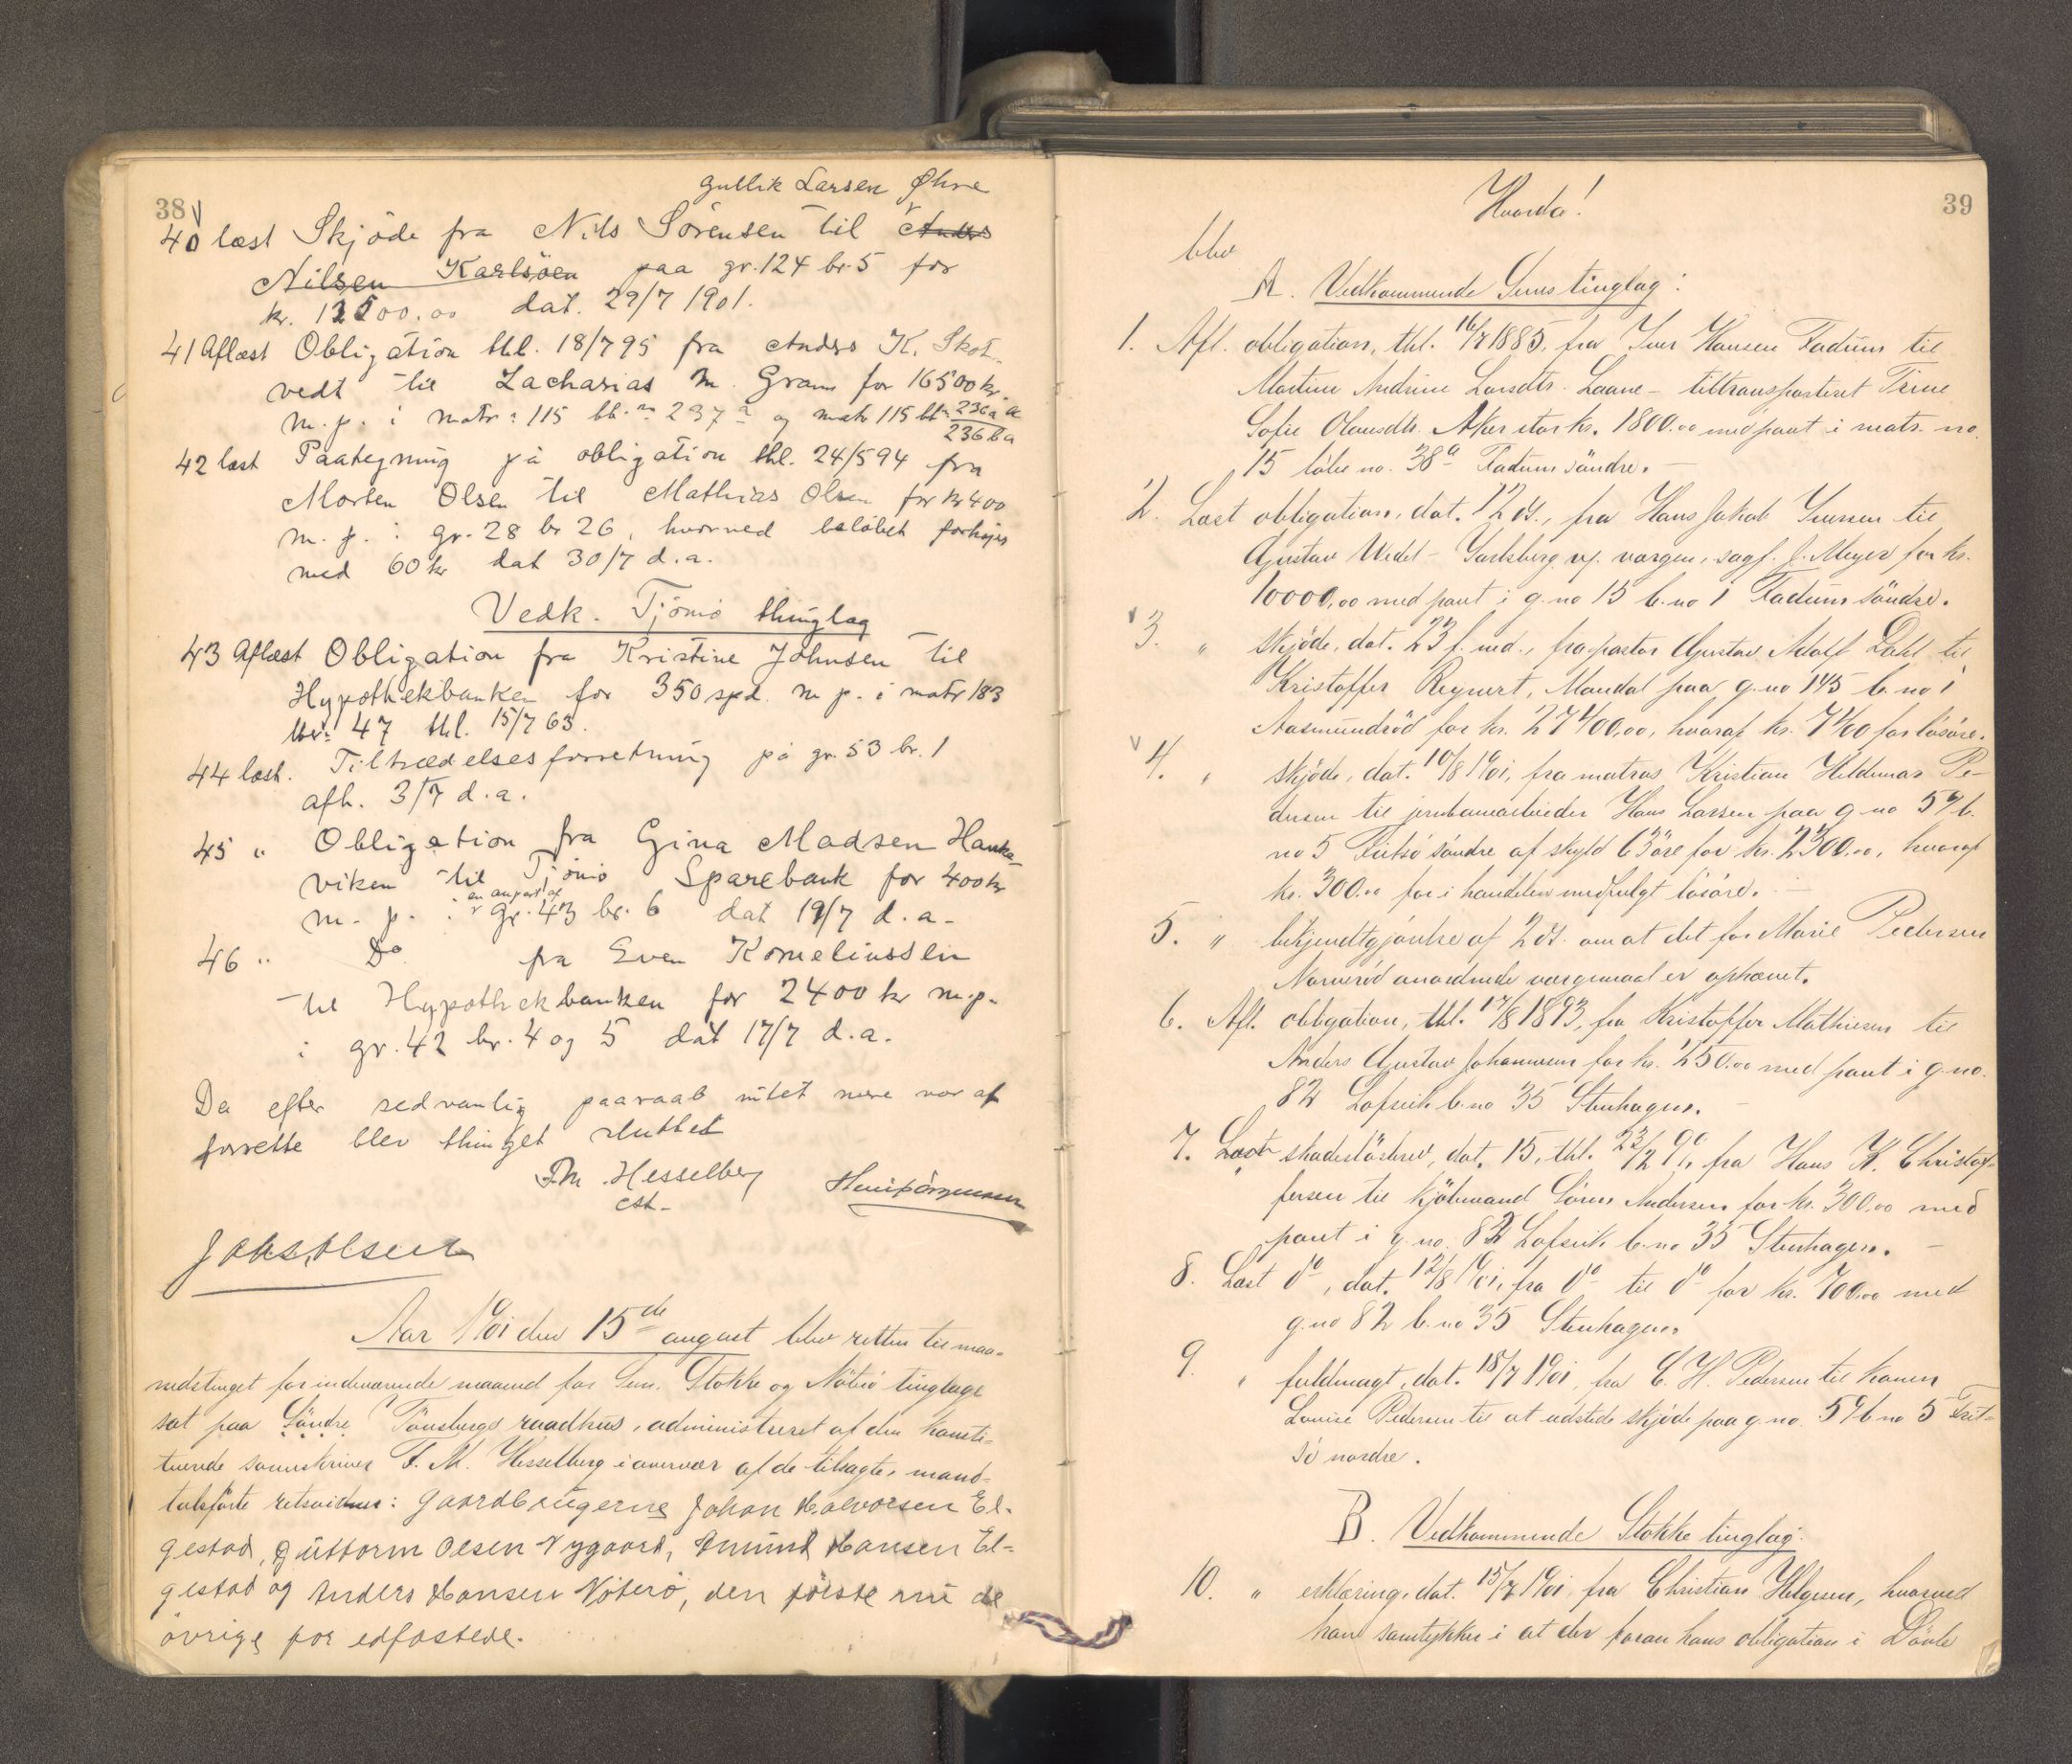 38
Gullik Larsen Øhre
40 læst Skjøde fra Nils Sørensen til Anders
Nilsen Karlsöen paa gr. 124 br. 5 for
kr. 12500.00 dat. 29/7 1901.
41 Aflæst Obligation thl. 18/7 95 fra Anders K. Skot-
vedt til Zacharias M. Gram for 16500 kr.
m. p. i matr: 115 lb. no 237 a og matr 115 lb. 236 a a
236 b a
42 læst Paategning på obligation thl. 24/5 94 fra
Morten Olsen til Mathias Olsen for kr 400
m. p. i gr. 28 br 26, hvorved beløbet forhøjes
med 60 kr dat 30/7 d. a.
Vedk. Tjömö thinglag
43 Aflæst Obligation fra Kristine Johnsen til
Hypothekbanken for 350 spd. m p. i matr 183
lbr: 47 thl. 15/7 63.
44 læst. Tiltrædelsesforretning på gr. 53 br. 1
afh. 3/7 d. a.
45 " Obligation fra Gina Madsen Hauka-
viken til Tjömö Sparebank for 400 kr
en anpart af
m. p. i gr. 43 br. 6 dat 19/7 d. a.
46 " Do fra Even Korneliussen
til Hypothekbanken for 2400 kr m. p.
i gr. 42 br. 4 og 5 dat 17/7 d. a.
Da efter sedvanlig paaraab intet mere var at
forrette blev thinget sluttet
F. M. Hesselberg
cst.
Johs. Olsen
Aar 1901 den 15de august blev retten til maa-
nedstinget for indeværende maaned for Sem, Stokke og Nøtterø tinglage
sat paa Söndre Tönsbergs raadhus, administreret af den konsti-
tuerede sorenskriver F. M. Hesselberg i overvær af de tilsagte, mand-
talsførte retsvidner: gaardbrugerne Johan Halvorsen El-
gestad, Guttorm Olsen Nygaard, Amund Hansen El-
gestad og Anders Hansen Nöterö, den förste nu de
övrige för edfæstede.
39
Hvorda!
blev
A. Vedkommende Sems tinglag:
1. Afl. obligation, thl. 16/7 1885, fra Iver Hansen Fadum til
Martine Andrine Larsdtr. Laane – tiltransporteret Trine
Sofie Olausdtr. Aker stor kr. 1800.00 med pant i matr. no.
15 löbe no. 38a Fadum söndre.
2. Læst obligation, dat. 12 ds., fra Hans Jakob Iversen til
Gustav Wedel-Jarlsberg v. vergen, sagf. J. Meyer for kr.
10000,00 med pant i g. no 15 b. no 1 Fadum söndre.
3. " skjöde, dat. 23 f. md., fra pastor Gustav Adolf Dahl til
Kristoffer Regnert, Mandal paa g. no 145 b. no 1
Aasmundröd for kr. 27400,00, hvoraf kr. 7400 for lösöre.
4. " skjöde, dat. 10/8 1901, fra matros Kristian Heldemar Pe-
dersen til jernbanearbeider Hans Larsen paa g. no 59 b.
no 5 Firkö söndre af skyld 63 öre for kr. 2300.00, hvoraf
kr. 300.00 for i handelen medfulgt lösöre.
5. " bekjendtgjörelse af 2 ds. om at det for Marie Pedersen
Narveröd anordnede vergemaal er ophævet.
6. Afl. obligation, thl. 17/8 1893, fra Kristoffer Mathisen til
Anders Gustav Johannesen for kr. 250.00 med pant i g. no.
82 Lofsvik b. no 35 Stenhagen.
7. Læst skadeslösbrev, dat. 15, thl. 23/2 99, fra Hans K. Christof-
fersen til kjöbmand Sören Andersen for kr. 300.00 med
pant i g. no. 82 Lofsvik b. no 35 Stenhagen.
8. Læst do, dat. 12/8 1901, fra do til do for kr. 700.00 med
g. no 82 b. no 35 Stenhagen.
9. " fuldmagt, dat. 18/7 1901, fra C. H. Pedersen til konen
Louise Pedersen til at udstede skjöde paa g. no. 59 b. no 5
nordre.
B. Vedkommende Stokke tinglag:
10. " erklæring, dat. 15/7 1901, fra Christian Helgesen, hvorved
han samtykker i at der foran hans obligation i